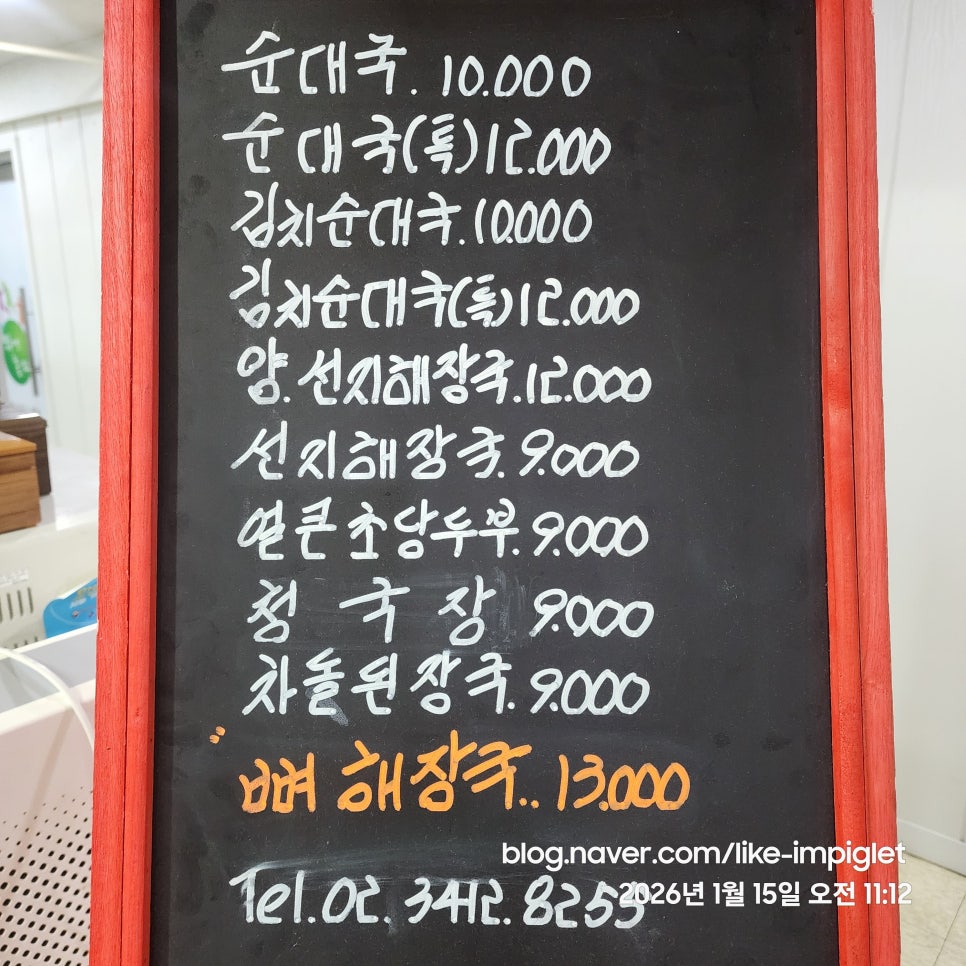 순대국. 10.000
순대국(특)12.000
김치순대국.10.000
김치순대국(특)12.000
양.선지해장국.12.000
선지해장국.9.000
얼큰초당두부.9.000
청국장 9.000
차돌된장국.9.000
"뼈해장국..13.000
blog.naver.com/like-impiglet
2026년 1월 15일 오전 11:12
Tel.02.3412.8253